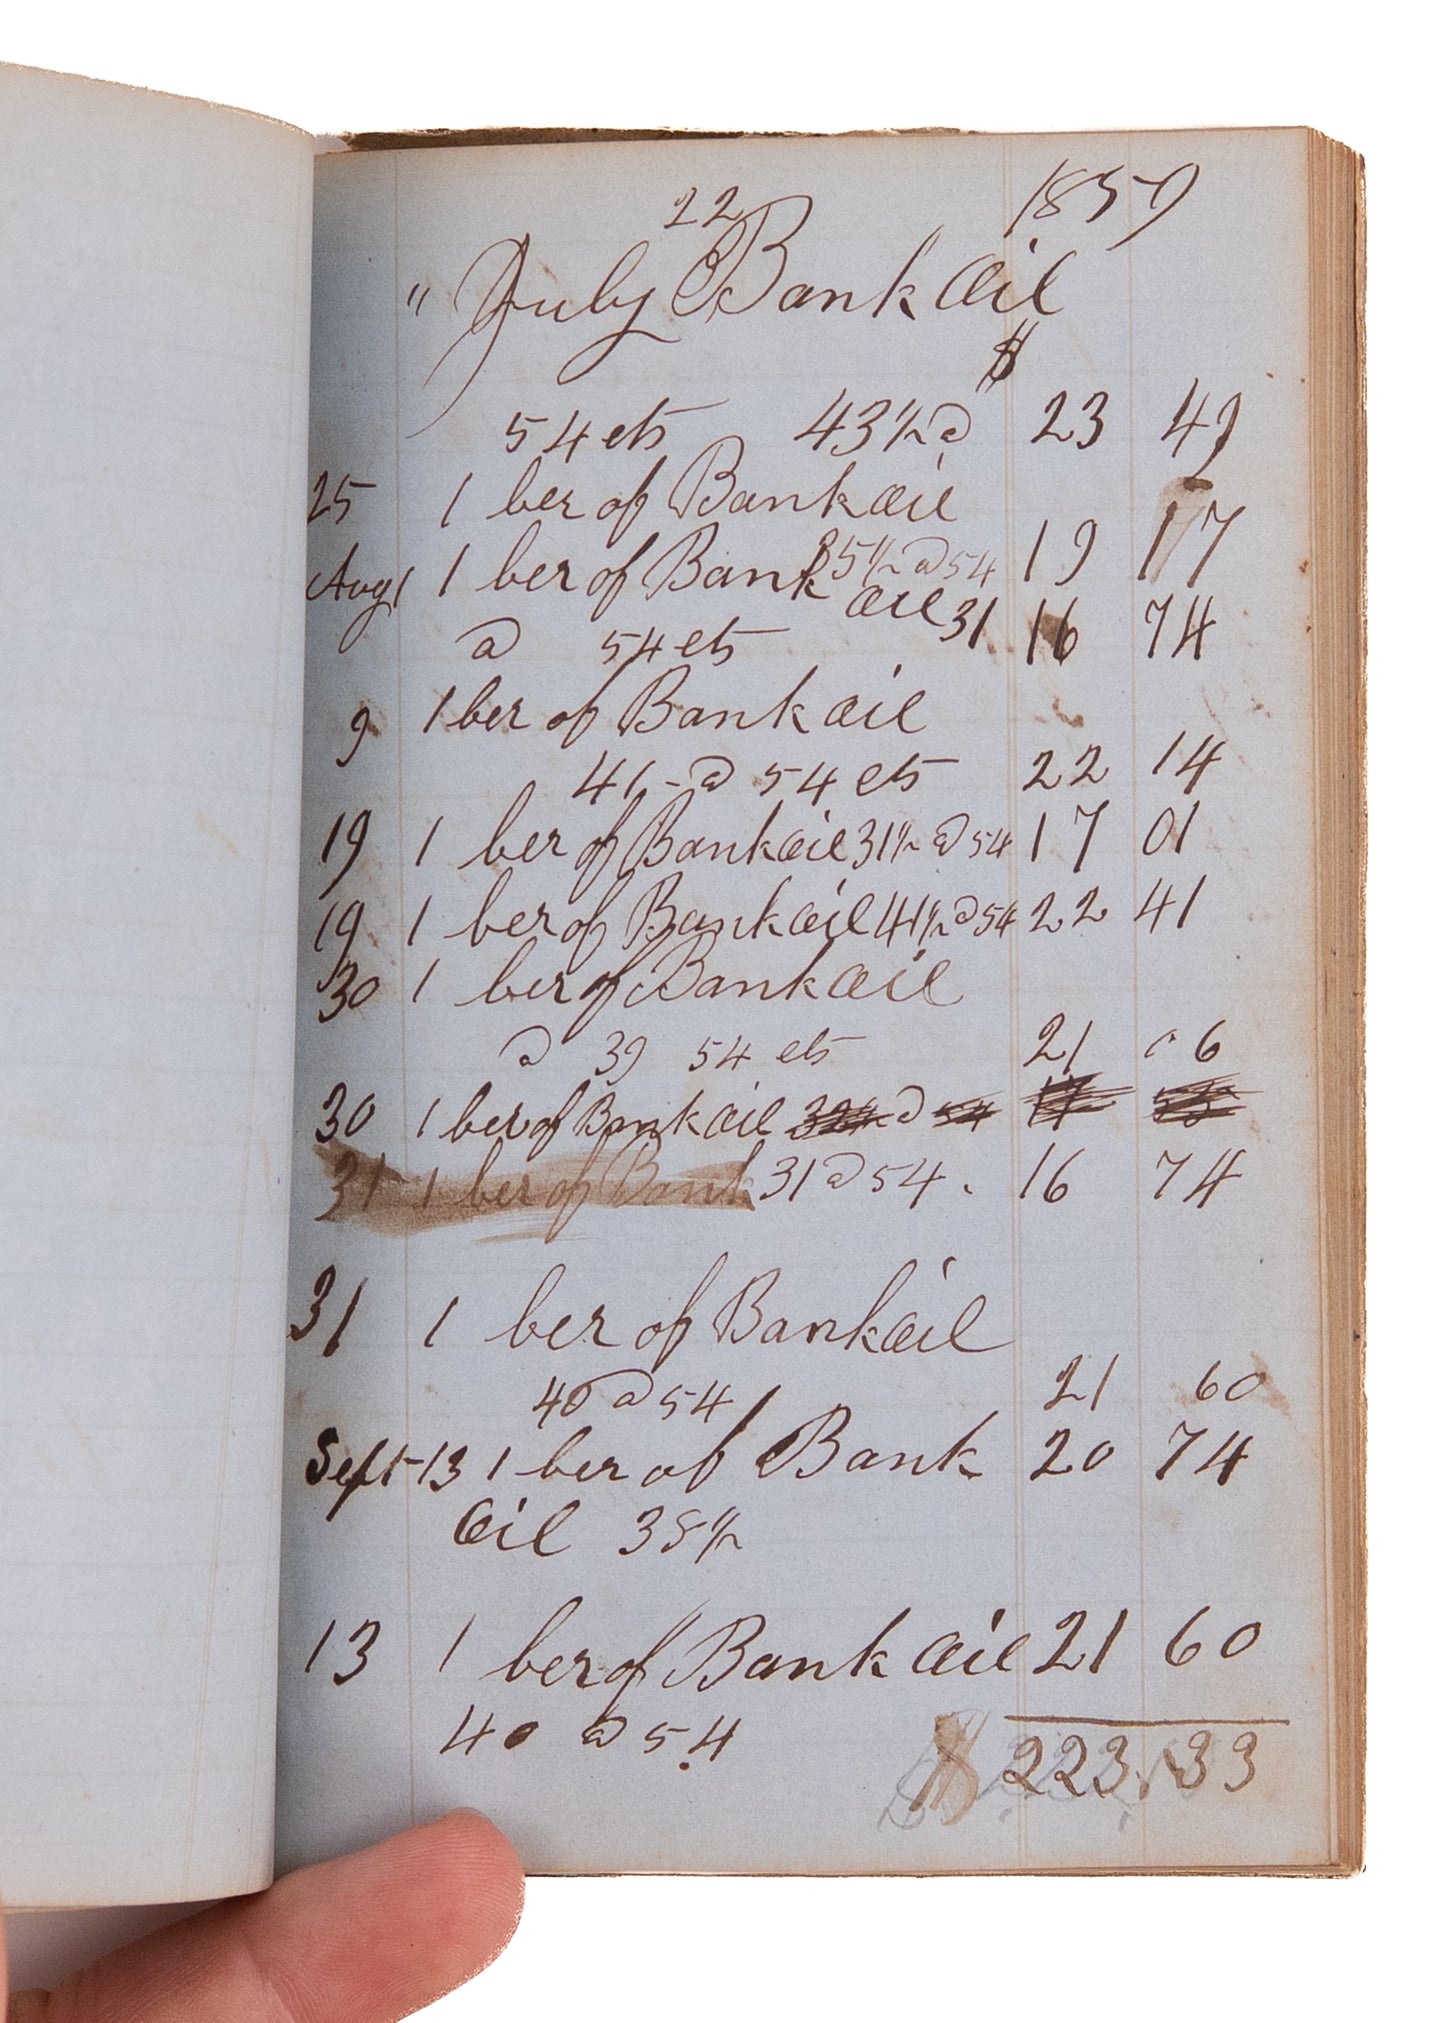 22 1859
" July Bank Oil
$
54 cts 43½ @ 23 49
25 1 ber of Bank oil
35½ @ 54 19 17
Aug 1 1 ber of Bank oil 31
@ 54 cts 16 74
9 1 ber of Bank oil
41 - @ 54 cts 22 14
19 1 ber of Bank oil 31½ @ 54 17 01
19 1 ber of Bank oil 41½ @ 54 22 41
30 1 ber of Bank oil
@ 39 54 cts 21 06
30 1 ber of Bank oil @
31 1 ber of Bank 31 @ 54 . 16 74
31 1 ber of Bank oil
40 @ 54 21 60
Sept 13 1 ber of Bank 20 74
Oil 38½
13 1 ber of Bank Oil 21 60
40 @ 54
$ 223.33